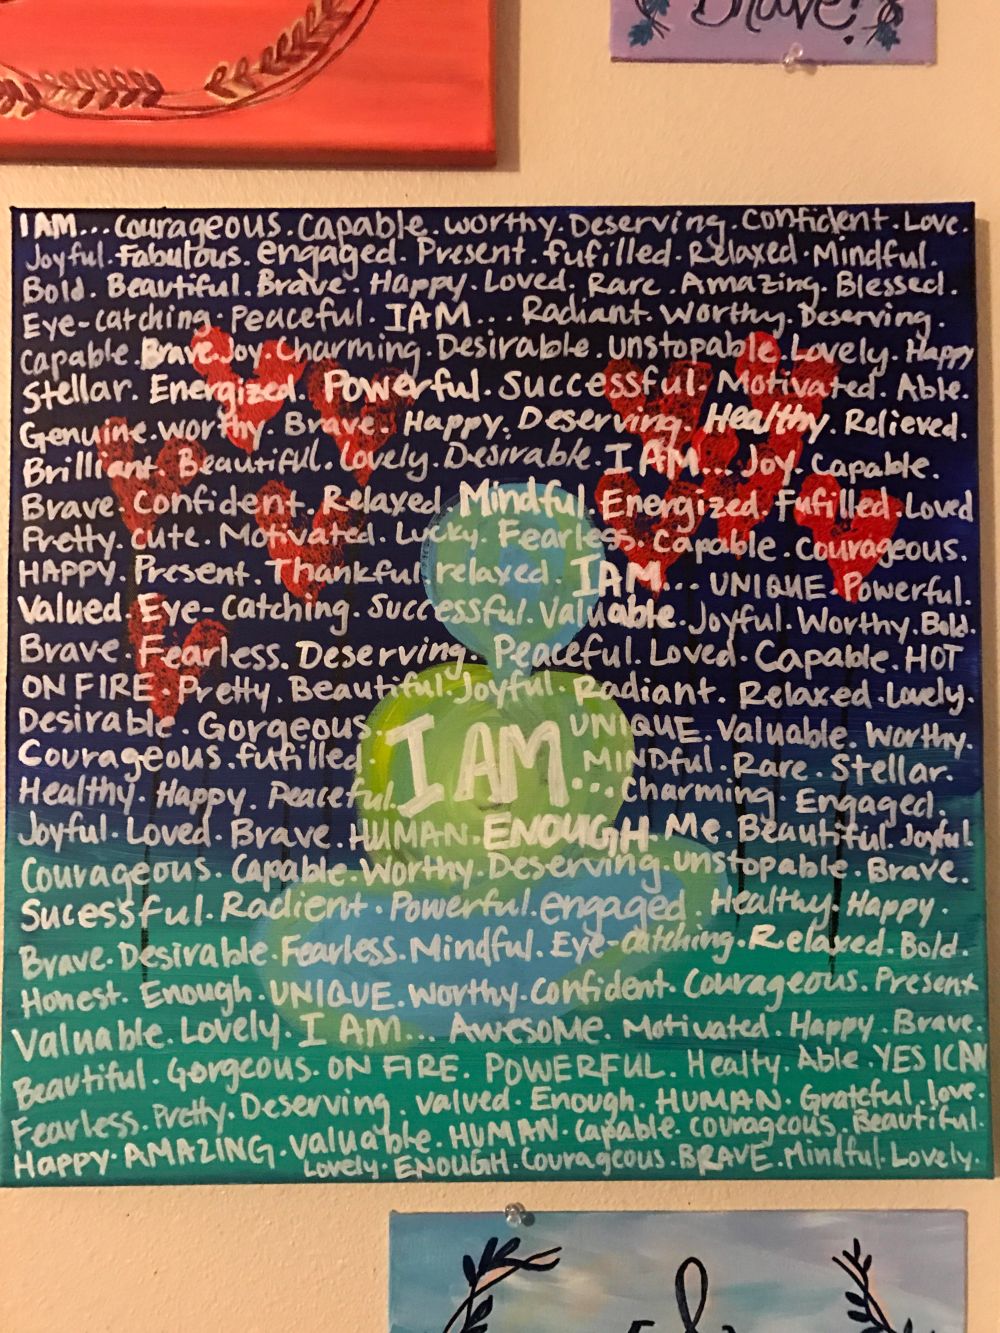 Brave!
I AM... Courageous. Capable. worthy. Deserving. Confident. Love.
Joyful. Fabulous. engaged. Present. fufilled. Relaxed. Mindful.
Bold. Beautiful. Brave. Happy. Loved. Rare. Amazing. Blessed.
Eye-catching. Peaceful. I AM... Radiant. worthy. Deserving.
Capable. Brave. Joy. Charming. Desirable. unstopable. Lovely. Happy
Stellar. Energized. Powerful. Successful. Motivated. Able.
Genuine. worthy. Brave. Happy. Deserving. Healthy. Relieved.
Brilliant. Beautiful. Lovely. Desirable. I AM... Joy. Capable.
Brave. Confident. Relaxed Mindful. Energized. Fufilled. Loved
Pretty. cute. Motivated. Lucky. Fearless. Capable. Courageous.
HAPPY. Present. Thankful relaxed. I AM... UNIQUE. Powerful.
Valued Eye-Catching. Successful. Valuable. Joyful. Worthy. Bold.
Brave. Fearless. Deserving. Peaceful. Loved. Capable. HOT
ON FIRE. Pretty. Beautiful. Joyful. Radiant. Relaxed. Lovely.
Desirable. Gorgeous. UNIQUE. Valuable. Worthy.
Courageous. fufilled. I AM... MINDful. Rare. Stellar.
Healthy. Happy. Peaceful. Charming. Engaged.
Joyful. Loved. Brave. HUMAN. ENOUGH. Me. Beautiful. Joyful.
Courageous. Capable. Worthy. Deserving unstopable. Brave.
Sucessful. Radient. Powerful. engaged. Healthy. Happy.
Brave. Desirable. Fearless. Mindful. Eye-catching. Relaxed. Bold.
Honest. Enough. UNIQUE. Worthy. Confident. Courageous. Present
Valuable. Lovely. I AM... Awesome. Motivated. Happy. Brave.
Beautiful. Gorgeous. ON FIRE. POWERFUL. Healty. Able. YES I CAN
Fearless. Pretty. Deserving. valued. Enough. HUMAN. Grateful. love.
Happy. AMAZING. Valuable. HUMAN. Capable. courageous. Beautiful.
Lovely. ENOUGH. Courageous. BRAVE. Mindful. Lovely.